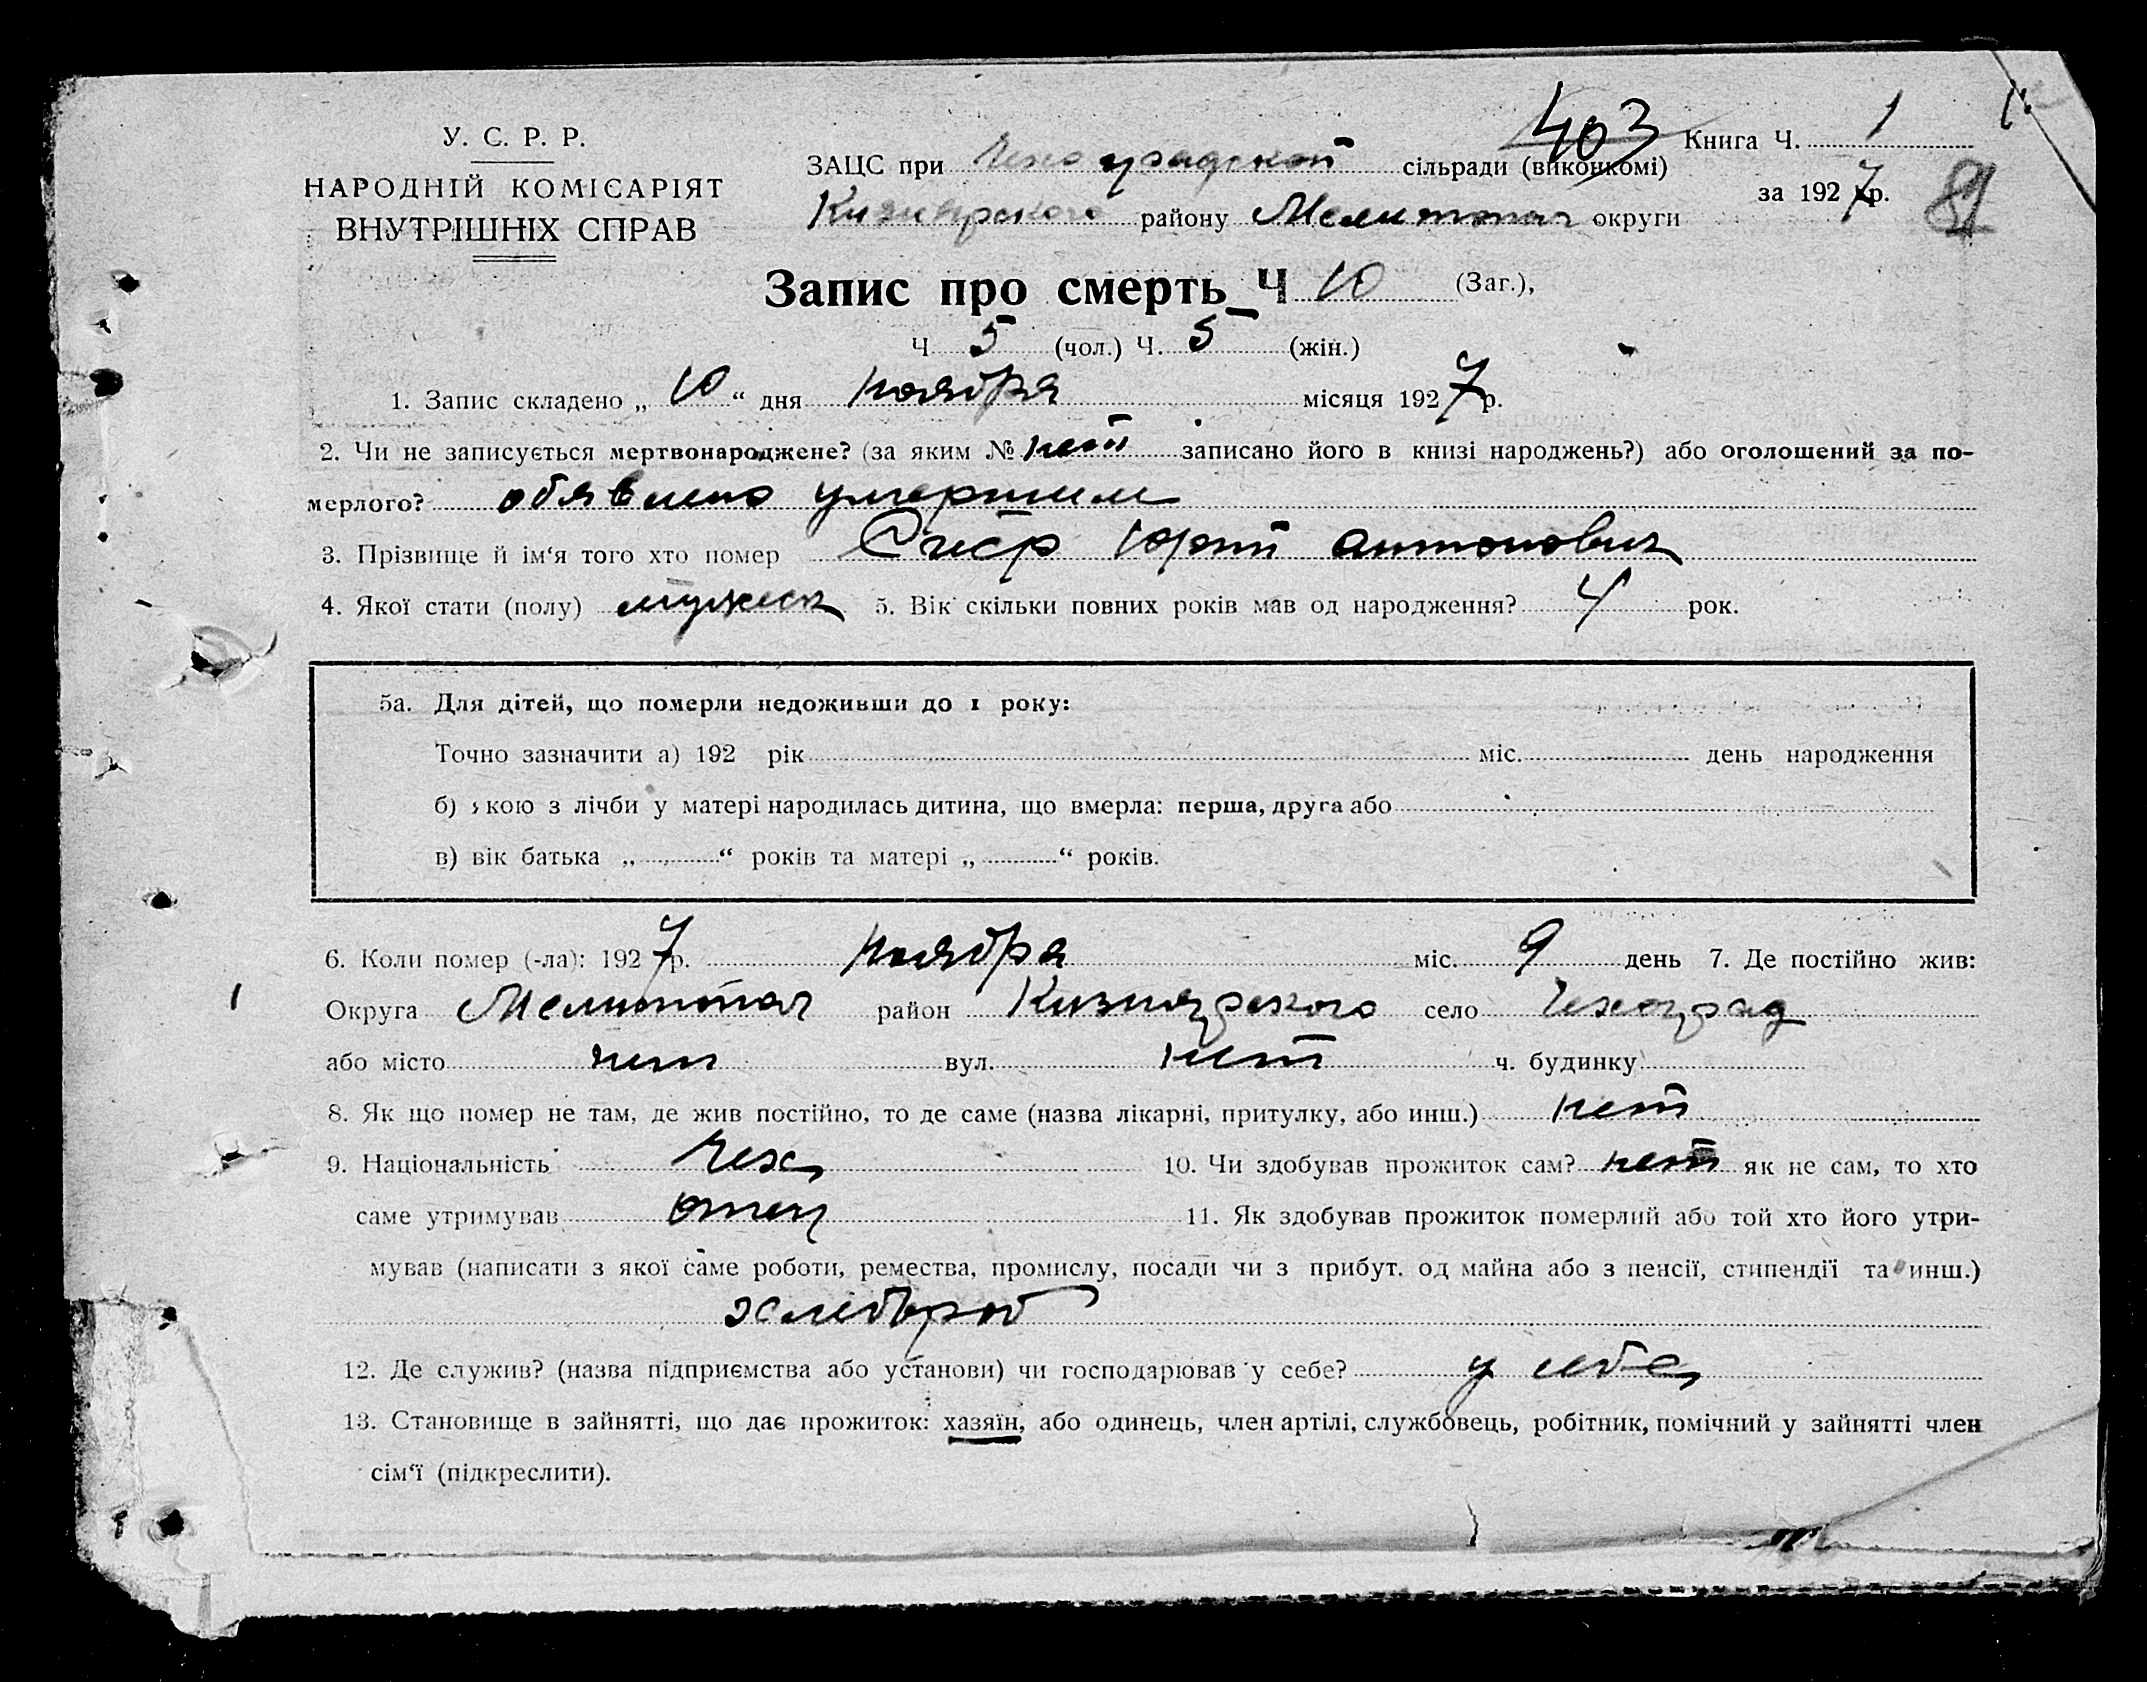 У. С. Р. Р.
НАРОДНІЙ КОМІСАРІЯТ
ВНУТРІШНІХ СПРАВ
403
Книга Ч. 1
ЗАЦС при Чехоградской сільради (виконкомі)
за 1927 р. 81
Кизиярского району Мелитопол округи
Запис про смерть Ч 10 (Заг.),
Ч 5 (чол.) Ч. 5 (жін.)
1. Запис складено „ 10 “ дня ноября місяця 1927 р.
2. Чи не записується мертвонароджене? (за яким № нет записано його в книзі народжень?) або оголошений за по-
мерлого? обявлено умершим
3. Прізвище й ім‘я того хто помер антонович
4. Якої стати (полу) мужеск 5. Вік скільки повних років мав од народження? 4 рок.
5а. Для дітей, що померли недоживши до 1 року:
Точно зазначити а) 192 рік міс. день народження
б) якою з лічби у матері народилась дитина, що вмерла: перша, друга або
в) вік батька „ “ років та матері „ “ років.
6. Коли помер (-ла): 1927 р. ноября міс. 9 день 7. Де постійно жив:
Округа Мелитопол район Кизиярского село Чехоград
або місто нет вул. нет ч. будинку
8. Як що помер не там, де жив постійно, то де саме (назва лікарні, притулку, або инш.) нет
9. Національність Чех 10. Чи здобував прожиток сам? нет як не сам, то хто
саме утримував отец 11. Як здобував прожиток померлий або той хто його утри-
мував (написати з якої саме роботи, ремества, промислу, посади чи з прибут. од майна або з пенсії, стипендії та инш.)
хлебороб
12. Де служив? (назва підприємства або установи) чи господарював у себе? у себе
13. Становище в зайнятті, що дає прожиток: хазяїн, або одинець, член артілі, службовець, робітник, помічний у зайнятті член
сім‘ї (підкреслити).